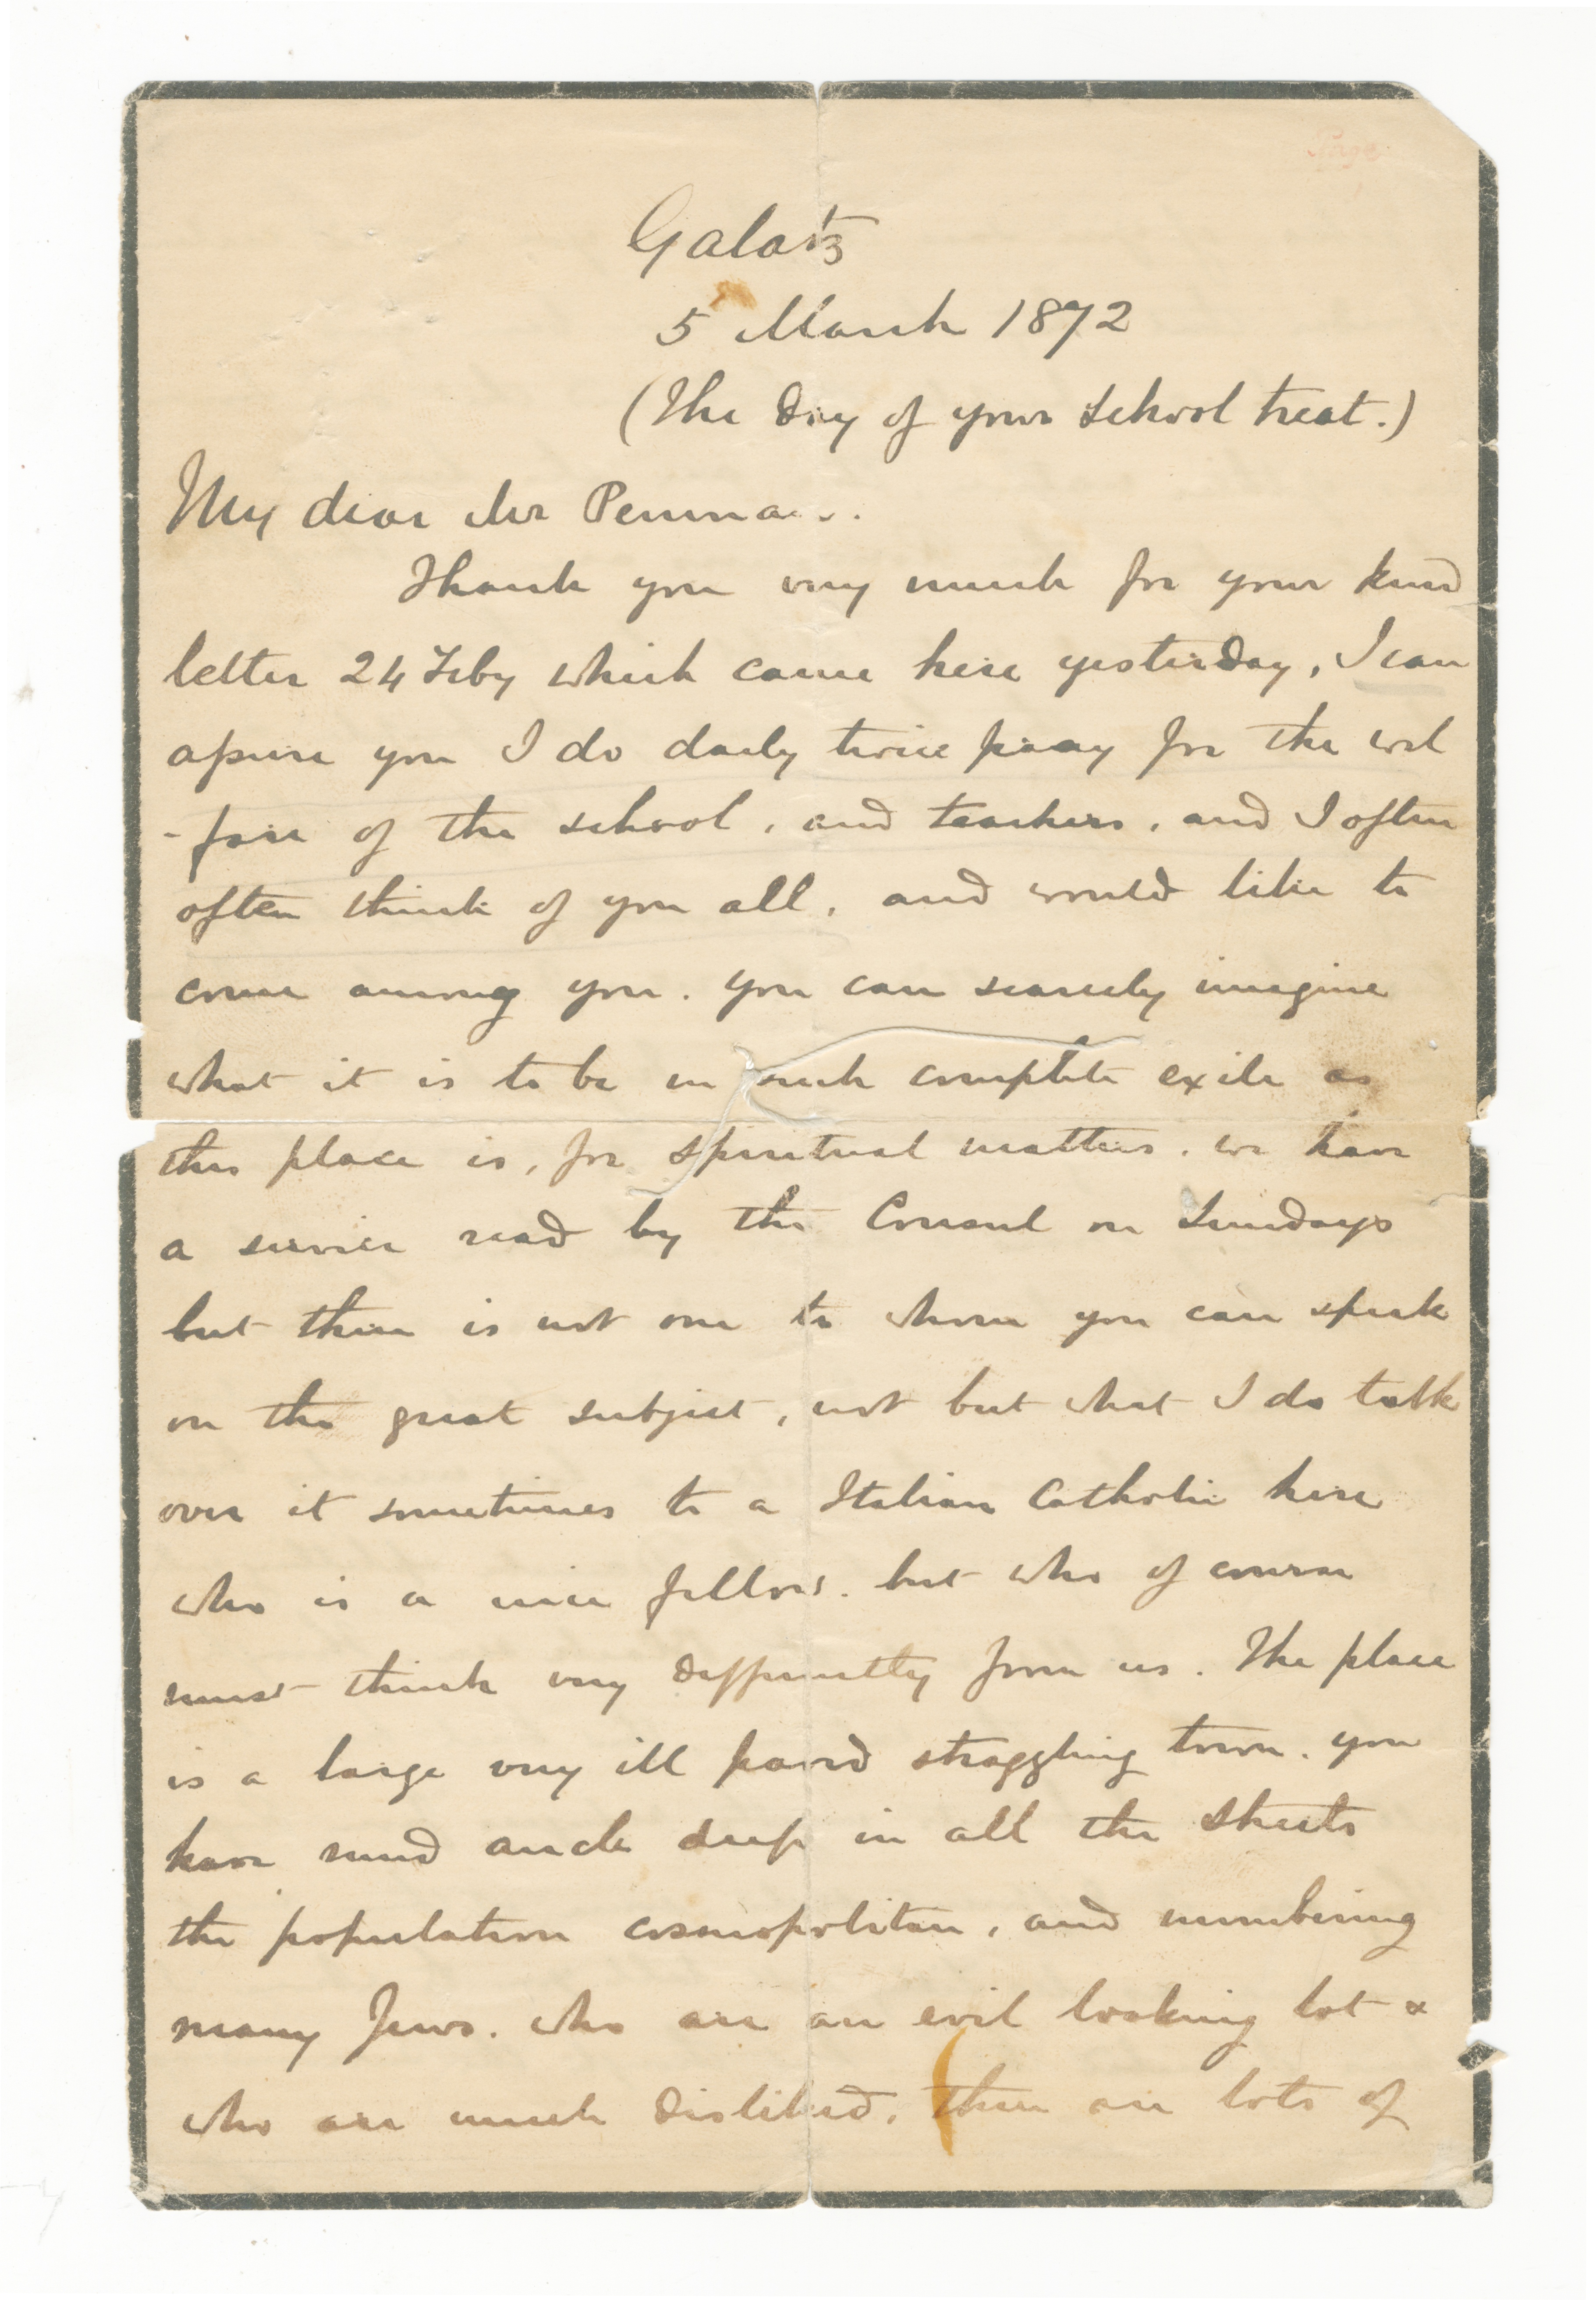 Galatz
5 March 1872
(The Day of your School treat.)
My dear Mr Penman.
Thank you very much for your kind
letter 24 Feby which came here yesterday, I can
assure you I do daily twice pray for the wel
-fare of the school, and teachers, and I often
often think of you all, and would like to
come among you. you can scarcely imagine
what it is to be in such complete exile as
this place is, for spiritual matters. we have
a service read by the Consul on Sundays
but there is not one to whom you can speak
on the great subject, not but what I do talk
over it sometimes to a Italian Catholic here
who is a nice fellow. but who of course
must think very differently from us. The place
is a large very ill paved straggling town. you
have mud ancle deep in all the streets
the population cosmopolitan, and numbering
many Jews. who are an evil looking lot &
who are much disliked. there are lots of